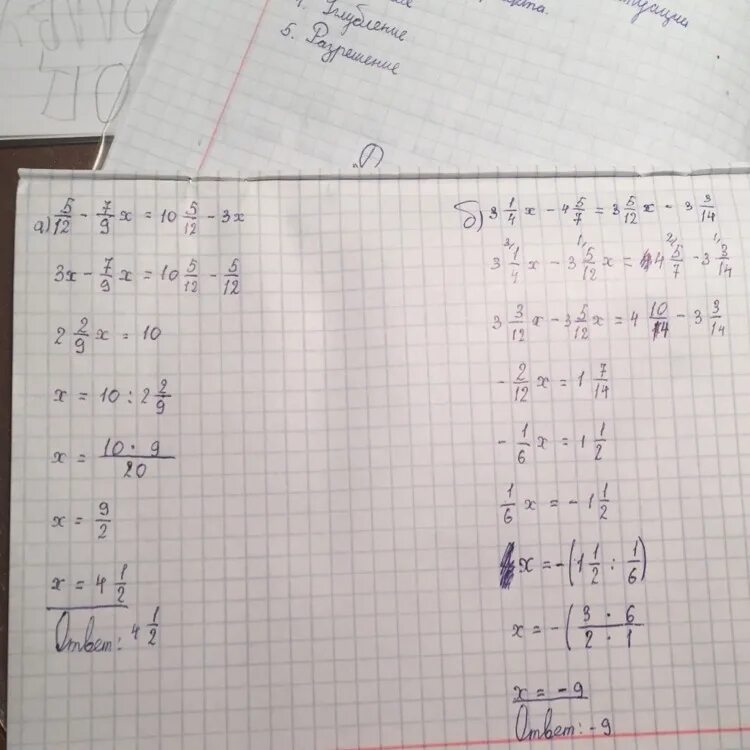 5. Углубление
Разрешение
а) 5/12 - 7/9 x = 10 5/12 - 3x
3x - 7/9 x = 10 5/12 - 5/12
2 2/9 x = 10
x = 10 : 2 2/9
x = 10 · 9 / 20
x = 9/2
x = 4 1/2
Ответ: 4 1/2
б) 3 1/4 x - 4 5/7 = 3 5/12 x - 3 3/14
3 1/4 x - 3 5/12 x = 4 5/7 - 3 3/14
3 3/12 x - 3 5/12 x = 4 10/14 - 3 3/14
- 2/12 x = 1 7/14
- 1/6 x = 1 1/2
1/6 x = - 1 1/2
x = -(1 1/2 : 1/6)
x = -( 3 · 6 / 2 · 1
x = - 9
Ответ: - 9